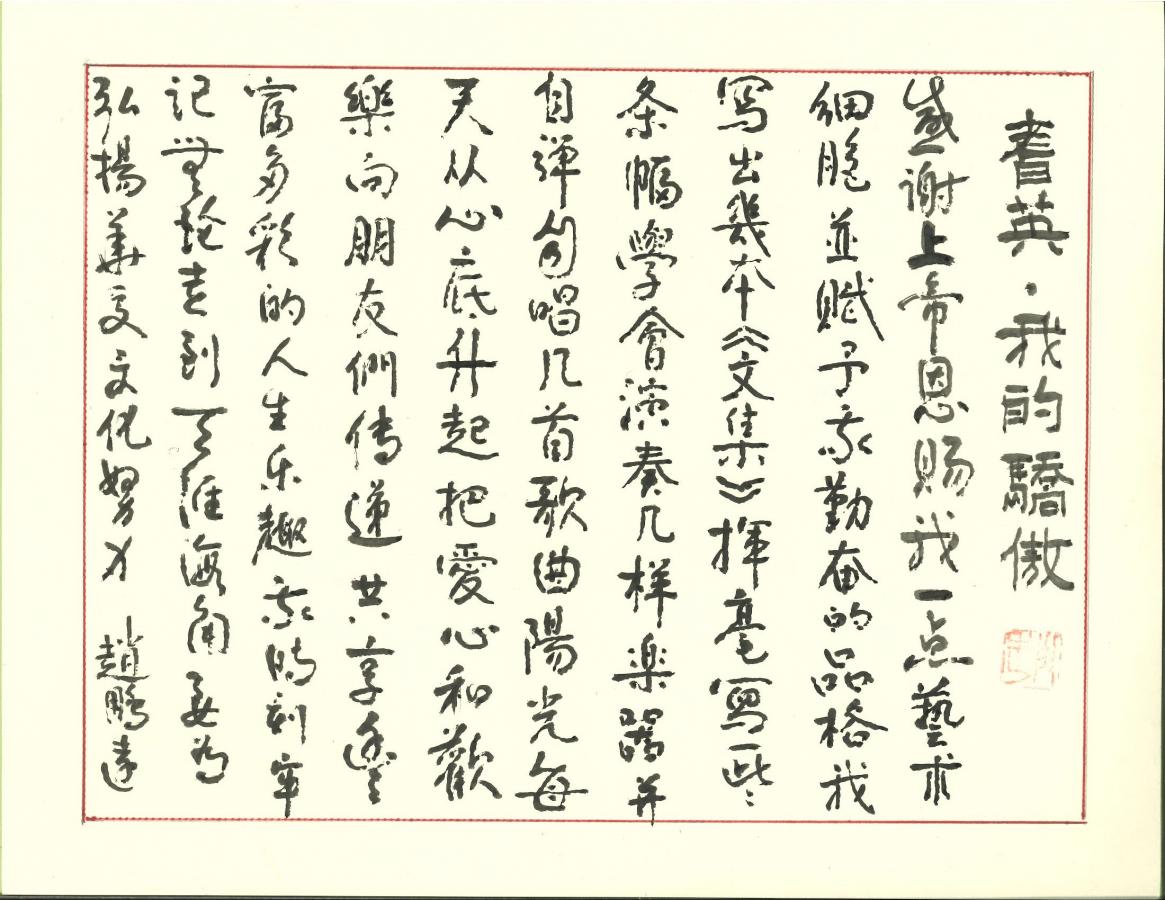 耆英·我的驕傲
感谢上帝恩賜我一点藝术
细胞並賦予我勤奋的品格我
寫出幾本《文集》揮毫寫一些
条幅學會演奏几样楽器并
自彈自唱几首歌曲陽光每
天从心底升起把愛心和歡
樂向朋友們传递共享豐
富多彩的人生乐趣我時刻牢
記無論走到天涯海角要为
弘揚華文文化努力 趙鵬遠